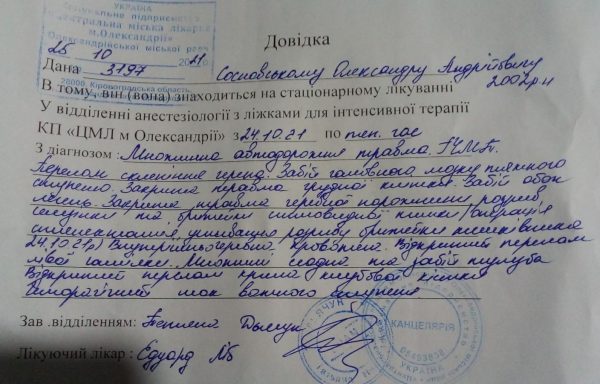 УКРАЇНА
Комунальне підприємство
«Центральна міська лікарня
м.Олександрії»
Олександрійської міської ради
25 10 2021
3197
28000 Кіровоградська область,
Довідка
Дана Сосновському Олександру Андрійовичу
2002р.н
В тому, він (вона) знаходиться на стаціонарному лікуванні
У відділенні анестезіології з ліжками для інтенсивної терапії
КП «ЦМЛ м Олександрії» з 24.10.21 по теп. час
З діагнозом: Множинна автодорожня травма. ГЧМТ.
Перелом склепіння черепа. Забій головного мозку тяжкого
ступеню. Закрита травма грудної клітки. Забій обох
легень. Закрита травма черевної порожнини розрив
селезінки та брижейки кишки/операція
спленектомія, ушивання розриву брижейки кишківника
24.10.21р) Внутрішньочеревна кровотеча. Відкритий перелом
лівої гомілки. Множинні садна та забій тулуба
Відкритий перелом крила клубової кістки
Геморагічний шок важкого ступеня
Зав .відділенням:
Лікуючий лікар : Едуард
КАНЦЕЛЯРІЯ
УКРАЇНА